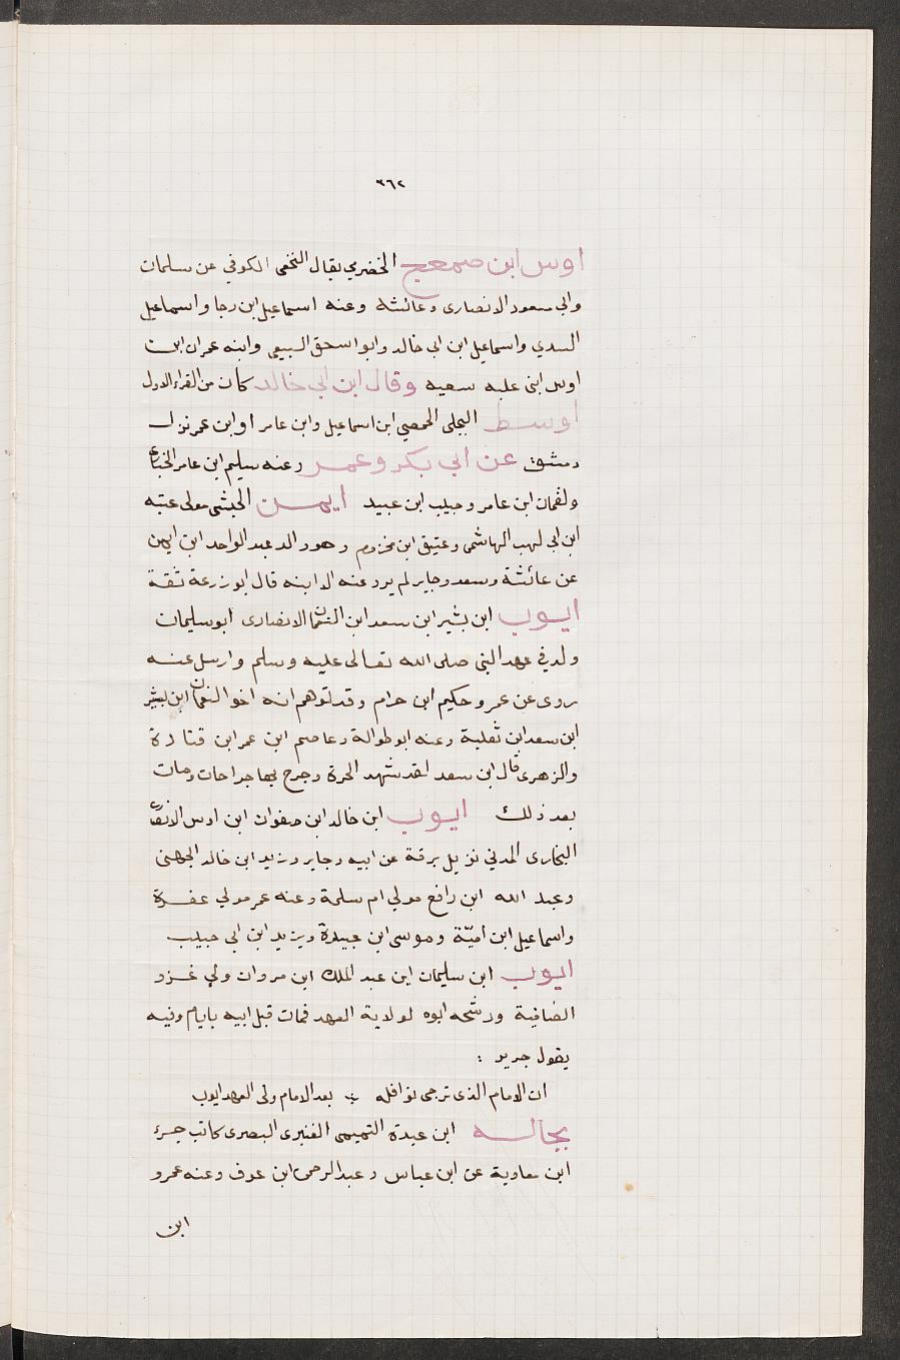 ٣٦٢
اوس ابن صمعج الحضرمي يقال النخعى الكوفي عن سلمان
وابي مسعود الانصارى وعائشه وعنه اسماعيل ابن رجا واسماعيل
السدي واسماعيل ابن ابي خالد وابو اسحق السبيعى وابنه عمران ابن
اوس اثنى عليه سعيه وقال ابن ابي خالد كان من القراء الاول
اوسط البجلى الحمصي ابن اسماعيل وابن عامر او ابن عمر نزل
دمشق عن ابي بكر وعمر وعنه سليم ابن عامر الخبائرى
ولقمان ابن عامر وحبيب ابن عبيد ايمن الحبشى مولى عتبه
ابن ابى لهب الهاشمى وعتيق ابن مخزوم وهو والد عبد الواحد ابن ايمن
عن عائشة وسعد وجابر لم يرو عنه الا ابنه قال ابو زرعة ثقة
ايوب ابن بشير ابن سعد ابن النعمان الانصارى ابو سليمان
ولد في عهد النبى صلى الله تعالى عليه وسلم وارسل عنه
روى عن عمر وحكيم ابن حزام وقد توهم انه اخو النعمان ابن بشير
ابن سعد ابن ثعلبة وعنه ابو طوالة وعاصم ابن عمر ابن قتادة
والزهرى قال ابن سعد لقد شهد الحرة وجرح بها جراحات ومات
بعد ذلك ايوب ابن خالد ابن صفوان ابن اوس الانصارى
البخارى المدني نزيل برقة عن ابيه وجابر وزيد ابن خالد الجهنى
وعبد الله ابن رافع مولي ام سلمة وعنه عمر مولي غفرة
واسماعيل ابن اميّة وموسى ابن عبيدة ويزيد ابن ابى حبيب
ايوب ابن سليمان ابن عبد الملك ابن مروان ولي غزو
الضافية ورشحه ابوه لولاية العهد فمات قبل ابيه بايام وفيه
يقول جرير :
ان الامام الذى ترجى نوافله ؛ بعد الامام ولى العهد ايوب
بجاله ابن عبدة التميمى العنبرى البصرى كاتب جزء
ابن معاوية عن ابن عباس وعبد الرحمن ابن عوف وعنه عمرو
ابن